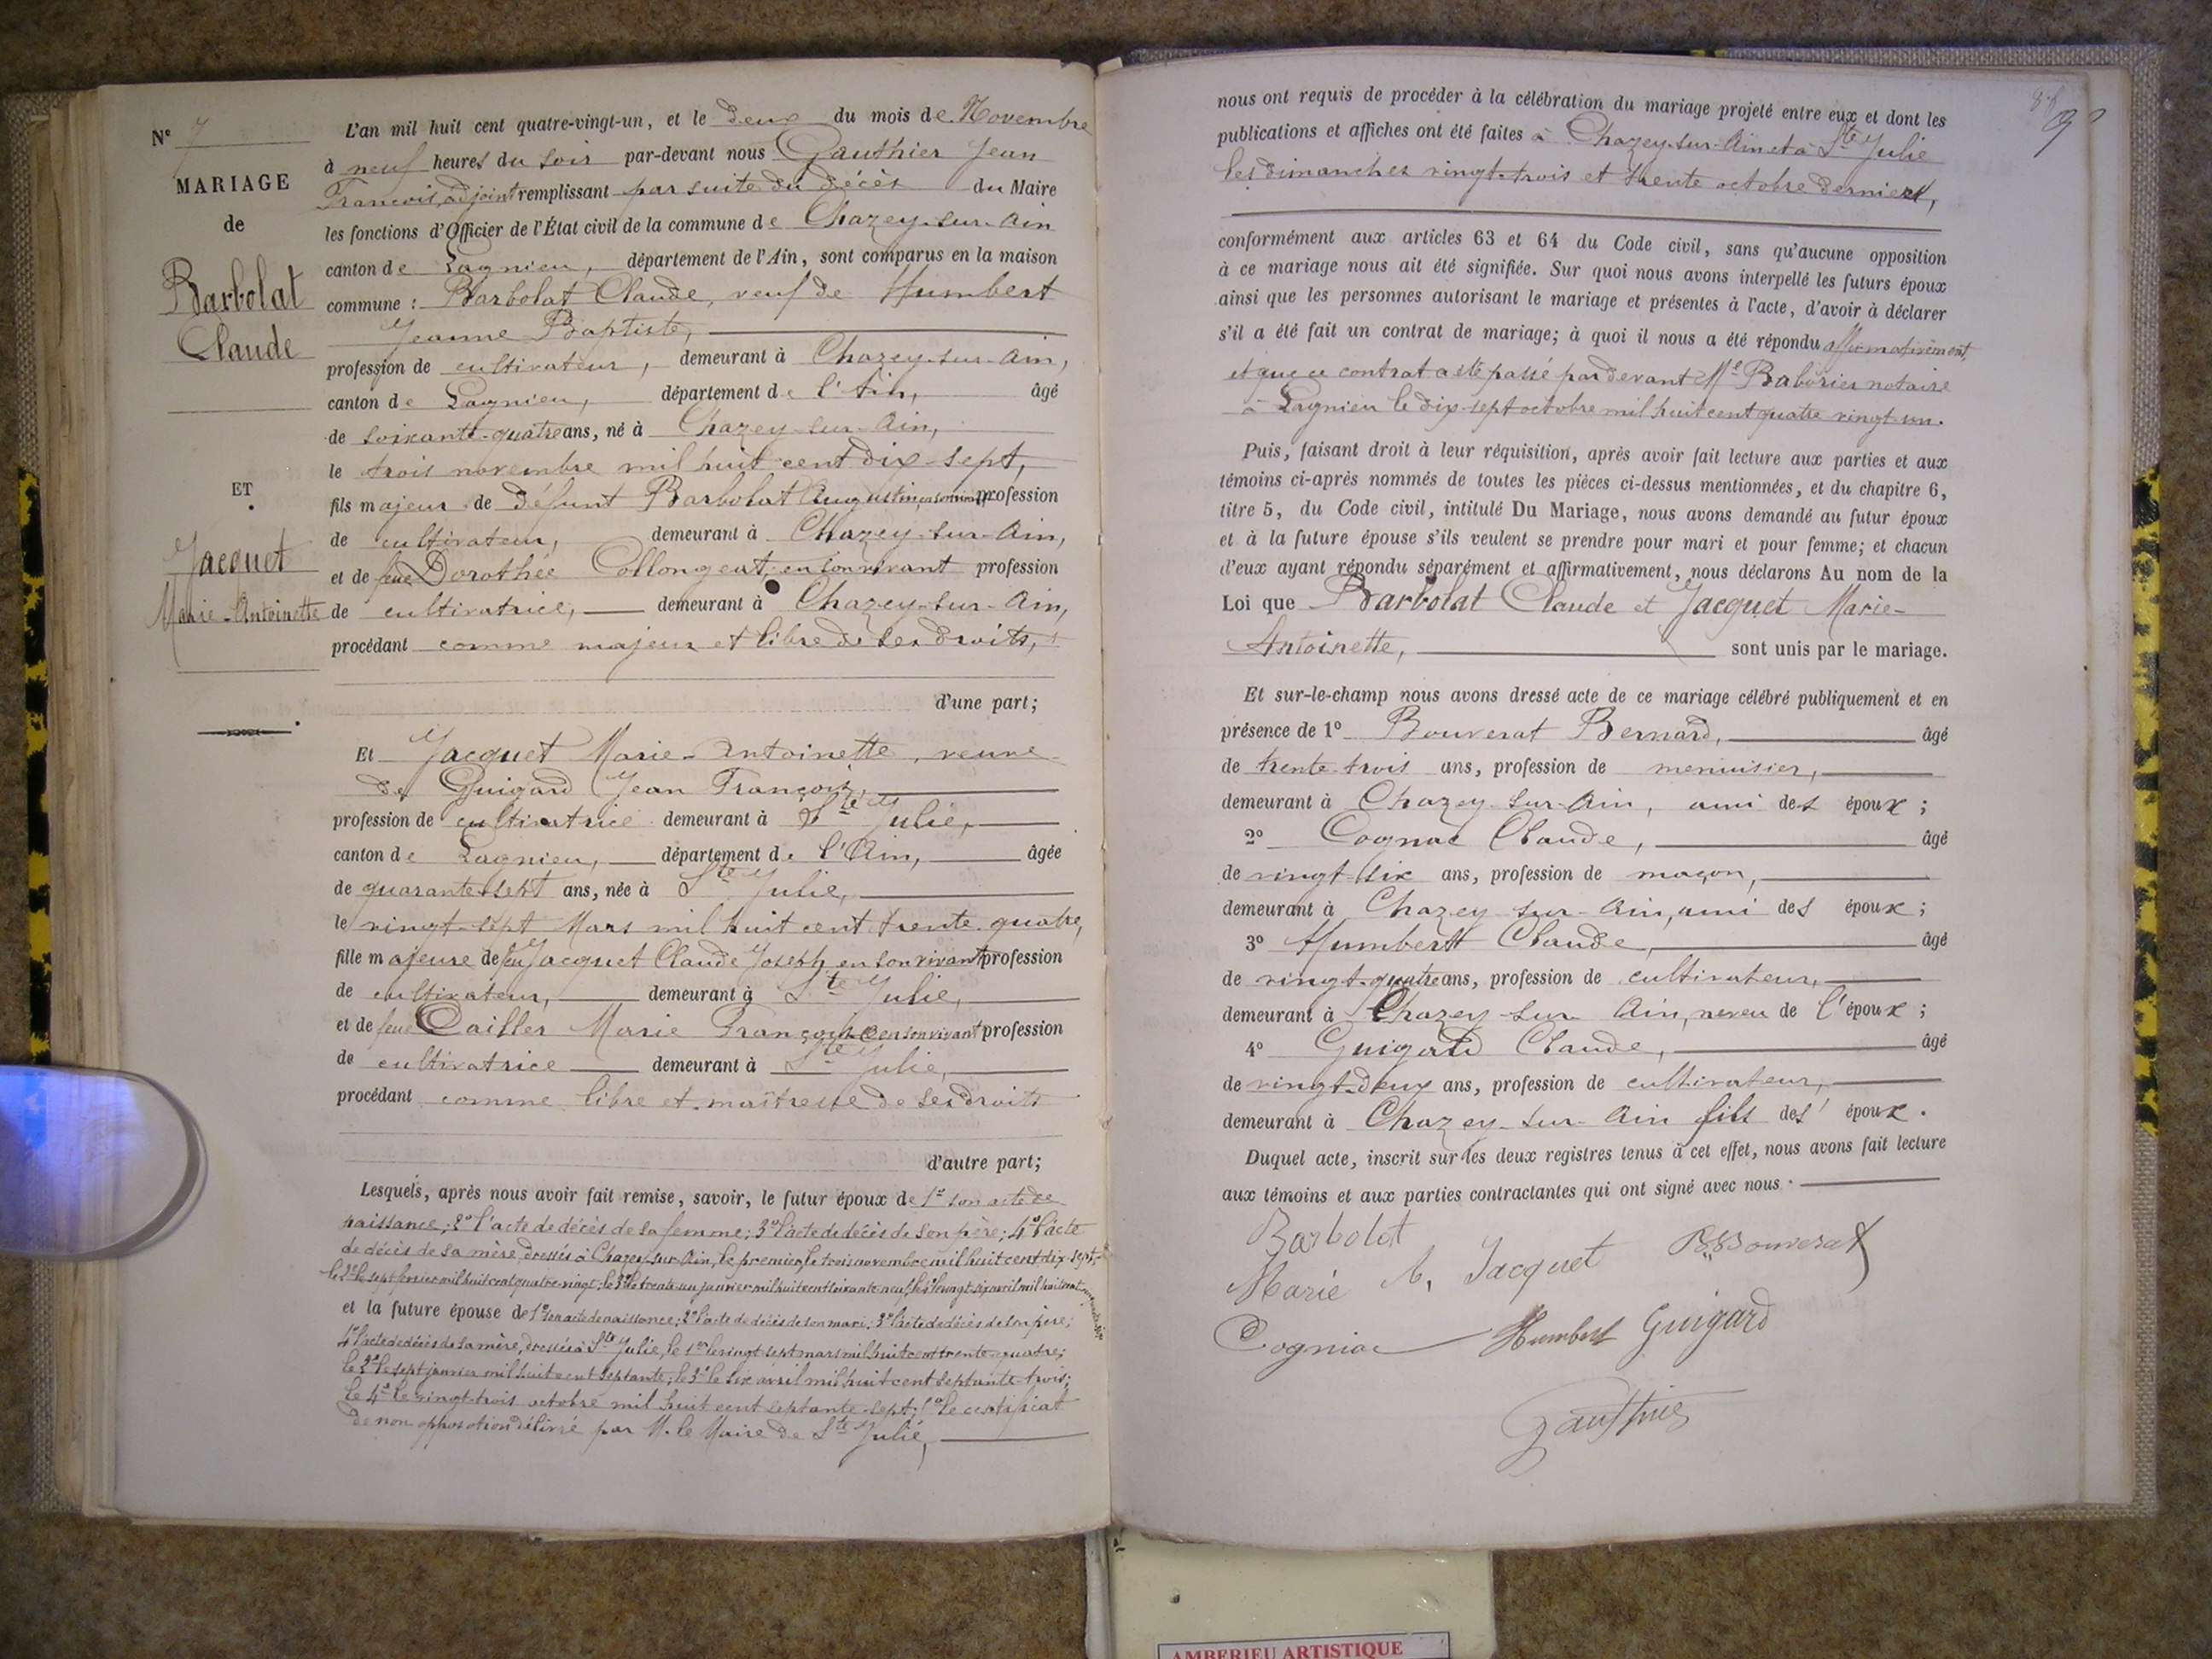 N° 7
MARIAGE
de
Barbolat
Claude
ET
Jacquet
Marie-Antoinette
L'an mil huit cent quatre-vingt-un, et le deux du mois de Novembre
à neuf heures du soir par-devant nous Gauthier Jean
François, adjoint remplissant par suite du décès du Maire
les fonctions d'Officier de l'État civil de la commune de Chazey-sur-Ain
canton de Lagnieu, département de l'Ain, sont comparus en la maison
commune : Barbolat Claude, veuf de Humbert
Jeanne Baptiste,
profession de cultivateur, demeurant à Chazey-sur-Ain,
canton de Lagnieu, département de l'Ain, âgé
de soixante-quatre ans, né à Chazey-sur-Ain,
le trois novembre mil huit cent dix-sept,
fils majeur de défunt Barbolat Augustin, en son vivant profession
de cultivateur, demeurant à Chazey-sur-Ain,
et de feue Dorothée Collongeat, en son vivant profession
de cultivatrice, demeurant à Chazey-sur-Ain,
procédant comme majeur et libre de ses droits,
d'une part;
Et Jacquet Marie-Antoinette, veuve
de Guigard Jean François,
profession de cultivatrice demeurant à Ste Julie,
canton de Lagnieu, département de l'Ain, âgée
de quarante-sept ans, née à Ste Julie,
le vingt-sept Mars mil huit cent trente-quatre,
fille majeure de feu Jacquet Claude Joseph en son vivant profession
de cultivateur, demeurant à Ste Julie,
et de feue Cailler Marie Françoise en son vivant profession
de cultivatrice demeurant à Ste Julie,
procédant comme libre et maîtresse de ses droits
d'autre part;
Lesquels, après nous avoir fait remise, savoir, le futur époux de 1° son acte de
naissance; 2° l'acte de décès de sa femme; 3° l'acte de décès de son père; 4° l'acte
de décès de sa mère, dressés à Chazey-sur-Ain, le premier le trois novembre mil huit cent dix-sept;
le 2e le sept février mil huit cent quatre-vingt; le 3e le trente-un janvier mil huit cent soixante-neuf; le 4e le vingt-six avril mil huit cent
et la future épouse de 1° son acte de naissance; 2° l'acte de décès de son mari; 3° l'acte de décès de son père;
4° l'acte de décès de sa mère, dressés à Ste Julie, le 1er le vingt sept mars mil huit cent trente-quatre;
le 2e le sept janvier mil huit cent septante; le 3e le six avril mil huit cent septante-trois;
le 4e le vingt-trois octobre mil huit cent septante-sept; 5° le certificat
de non opposition délivré par M. le Maire de Ste Julie,
nous ont requis de procéder à la célébration du mariage projeté entre eux et dont les
publications et affiches ont été faites à Chazey-sur-Ain et à Ste Julie
les dimanches vingt-trois et trente octobre derniers,
conformément aux articles 63 et 64 du Code civil, sans qu'aucune opposition
à ce mariage nous ait été signifiée. Sur quoi nous avons interpellé les futurs époux
ainsi que les personnes autorisant le mariage et présentes à l'acte, d'avoir à déclarer
s'il a été fait un contrat de mariage; à quoi il nous a été répondu affirmativement,
et que ce contrat a été passé par devant Me Baborier notaire
à Lagnieu le dix-sept octobre mil huit cent quatre vingt-un.
Puis, faisant droit à leur réquisition, après avoir fait lecture aux parties et aux
témoins ci-après nommés de toutes les pièces ci-dessus mentionnées, et du chapitre 6,
titre 5, du Code civil, intitulé Du Mariage, nous avons demandé au futur époux
et à la future épouse s'ils veulent se prendre pour mari et pour femme; et chacun
d'eux ayant répondu séparément et affirmativement, nous déclarons Au nom de la
Loi que Barbolat Claude et Jacquet Marie-
Antoinette, sont unis par le mariage.
Et sur-le-champ nous avons dressé acte de ce mariage célébré publiquement et en
présence de 1° Bouverat Bernard, âgé
de trente-trois ans, profession de menuisier,
demeurant à Chazey-sur-Ain, ami des époux;
2° Cognac Claude, âgé
de vingt-six ans, profession de maçon,
demeurant à Chazey-sur-Ain, ami des époux;
3° Humbert Claude, âgé
de vingt-quatre ans, profession de cultivateur,
demeurant à Chazey-sur-Ain, neveu de l'époux;
4° Guigard Claude, âgé
de vingt-deux ans, profession de cultivateur,
demeurant à Chazey-sur-Ain fils des époux.
Duquel acte, inscrit sur les deux registres tenus à cet effet, nous avons fait lecture
aux témoins et aux parties contractantes qui ont signé avec nous.
Barbolat
Marie A. Jacquet Bouverat
Cogniac Humbert Guigard
Gauthier
AMBERIEU ARTISTIQUE